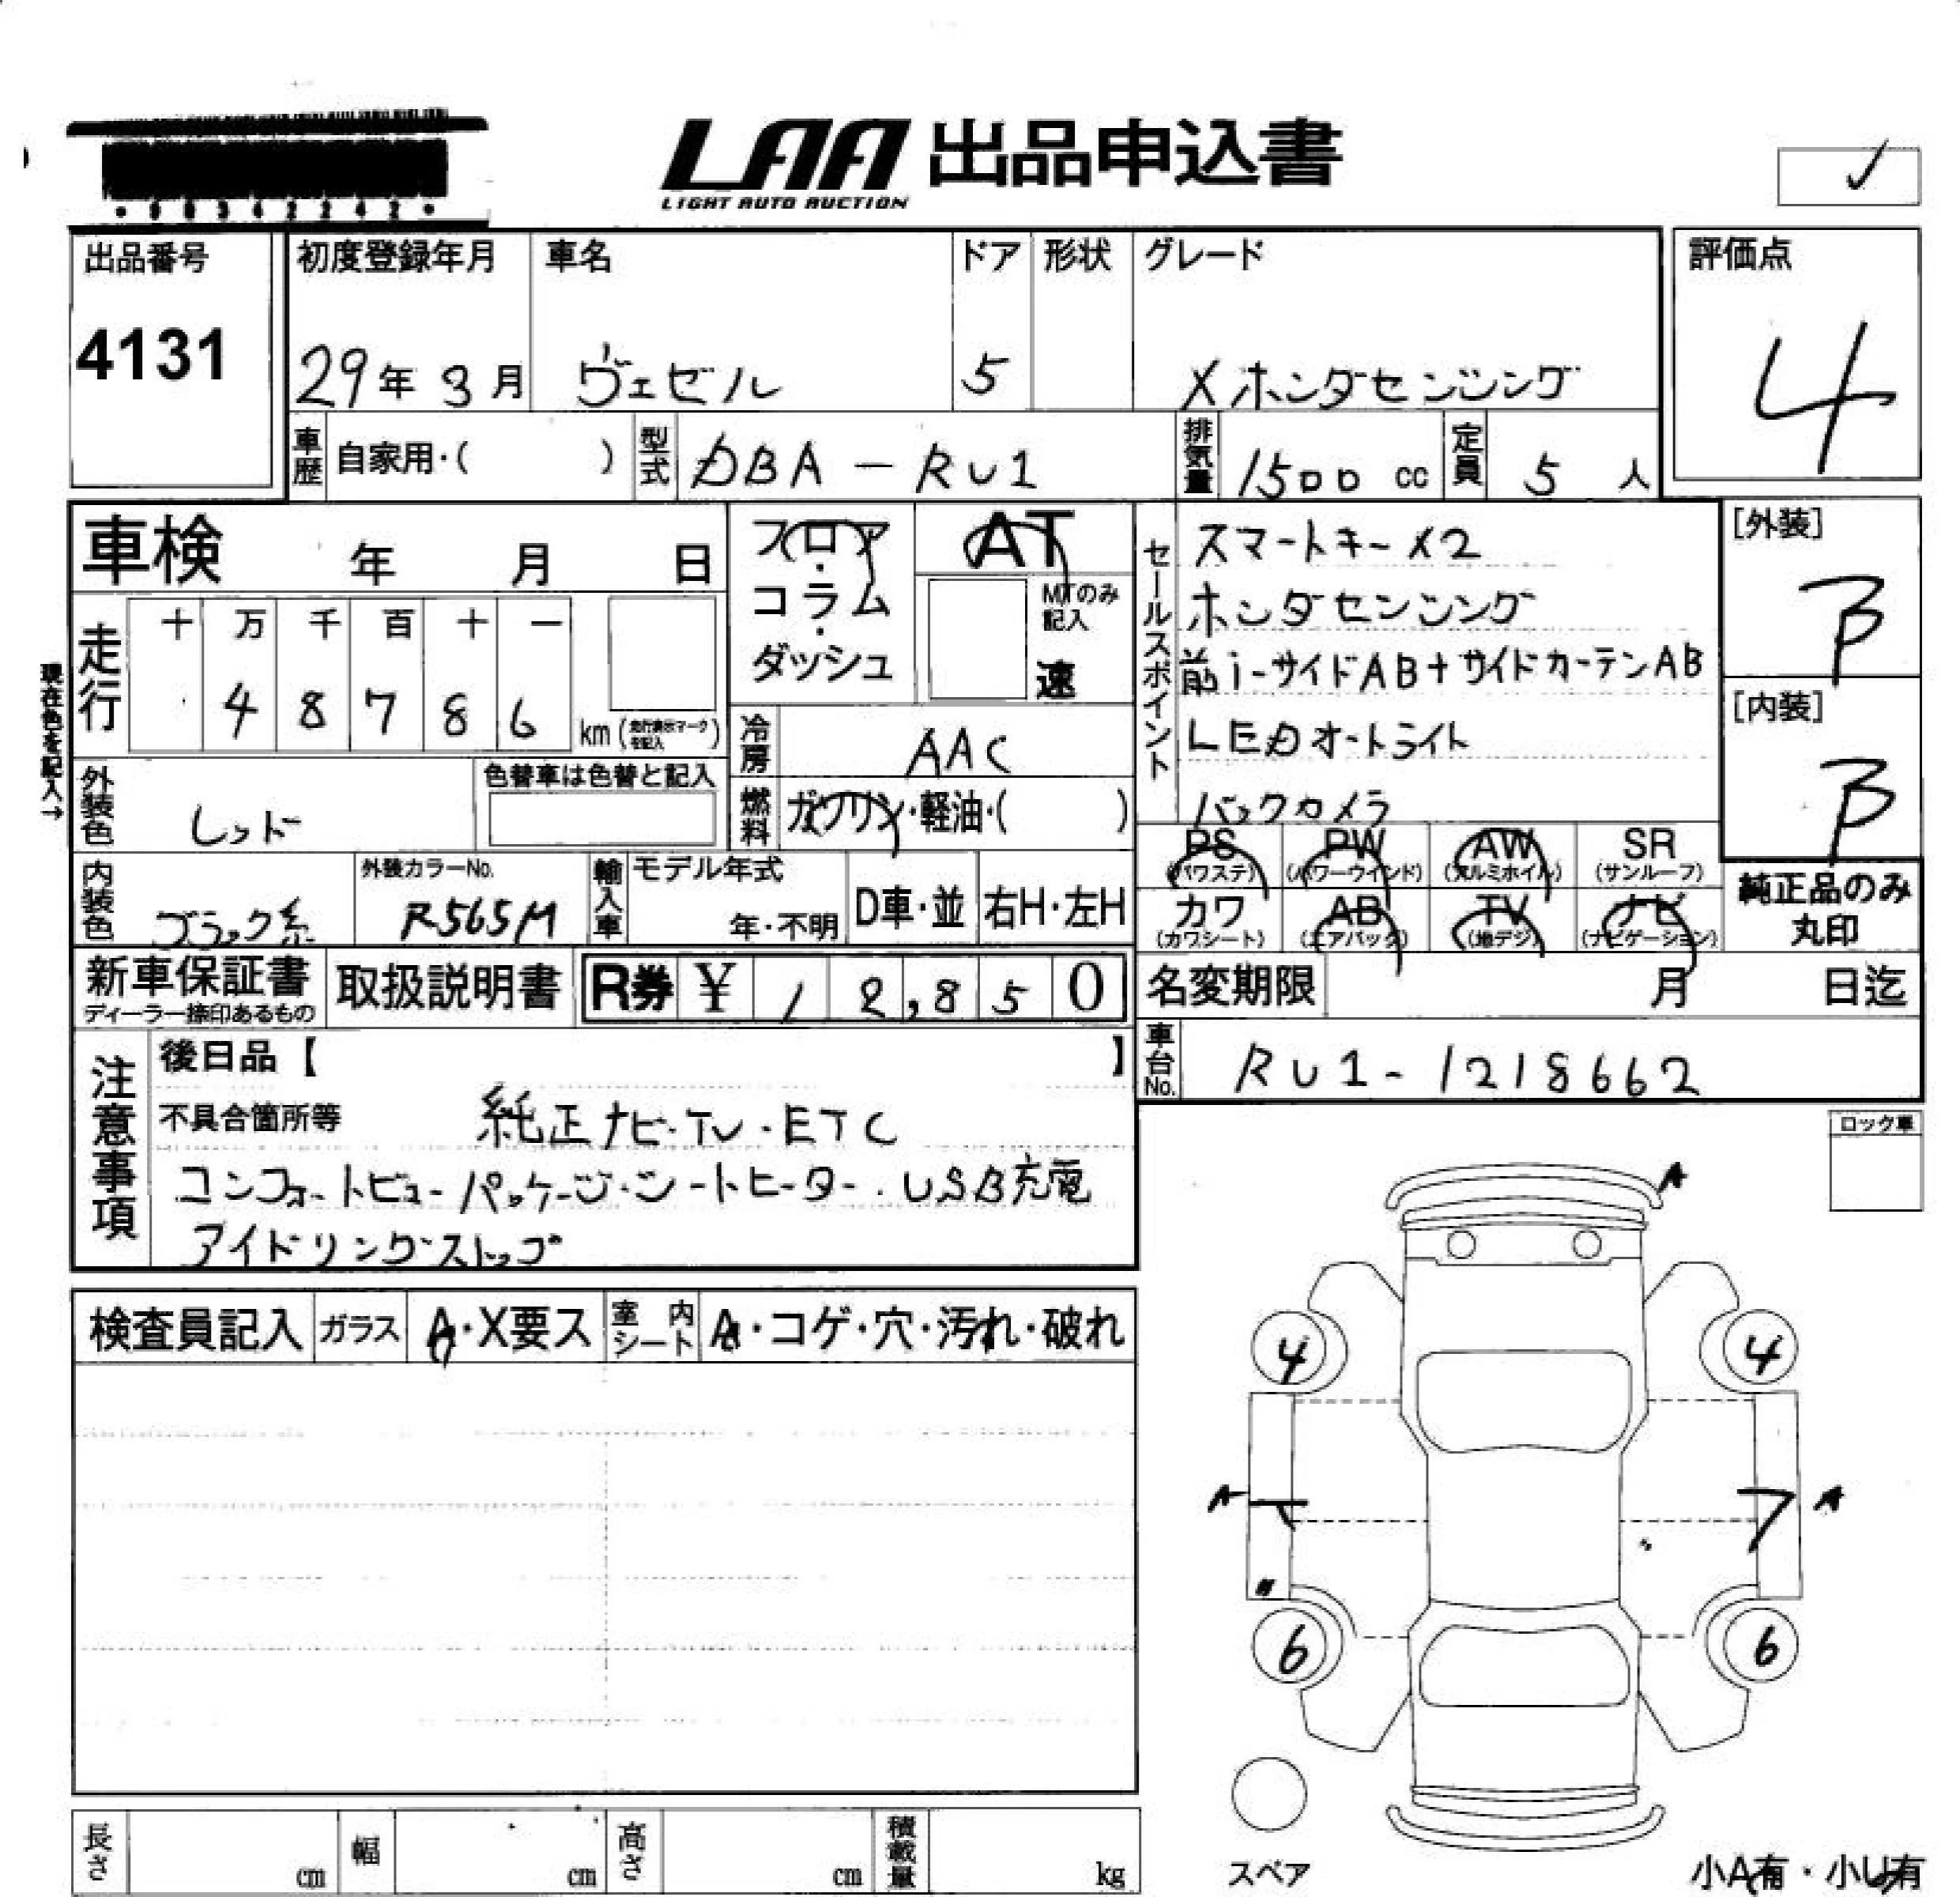 LAA 出品申込書
LIGHT AUTO AUCTION
出品番号 初度登録年月 車名 ドア 形状 グレード 評価点
4131 29年 3月 ヴェゼル 5 Xホンダセンシング 4
車歴 自家用・( ) 型式 DBA-RU1 排気量 1500 cc 定員 5 人
車検 年 月 日 フロア・コラム・ダッシュ AT
MTのみ記入 速
セールスポイント
スマートキーX2
ホンダセンシング
前i-サイドAB+サイドカーテンAB
LEDオートライト
バックカメラ
[外装] B
[内装] B
現在色を記入→
走行 十 万 千 百 十 一
4 8 7 8 6 km
冷房 AAC
外装色 レッド 色替車は色替と記入 燃料 ガソリン・軽油・( )
PS (パワステ) PW (パワーウインド) AW (アルミホイル) SR (サンルーフ)
内装色 ブラック系 外装カラーNo. R565M 輸入車 モデル年式 年・不明 D車・並 右H・左H
カワ (カワシート) AB (エアバッグ) TV (地デジ) ナビ (ナビゲーション)
純正品のみ丸印
新車保証書 ディーラー捺印あるもの 取扱説明書 R券 ¥ 1 2,8 5 0 名変期限 月 日迄
注意事項 後日品【 】 車台No. RU1-1218662
不具合箇所等 純正ナビ・TV・ETC
コンフォートビューパッケージ・シートヒーター・USB充電
アイドリングストップ
ロック車
検査員記入 ガラス A・X要ス 室内シート A・コゲ・穴・汚れ・破れ
A
4 4
A A
6 6
スペア
小A有・小U有
長さ cm 幅 cm 高さ cm 積載量 kg